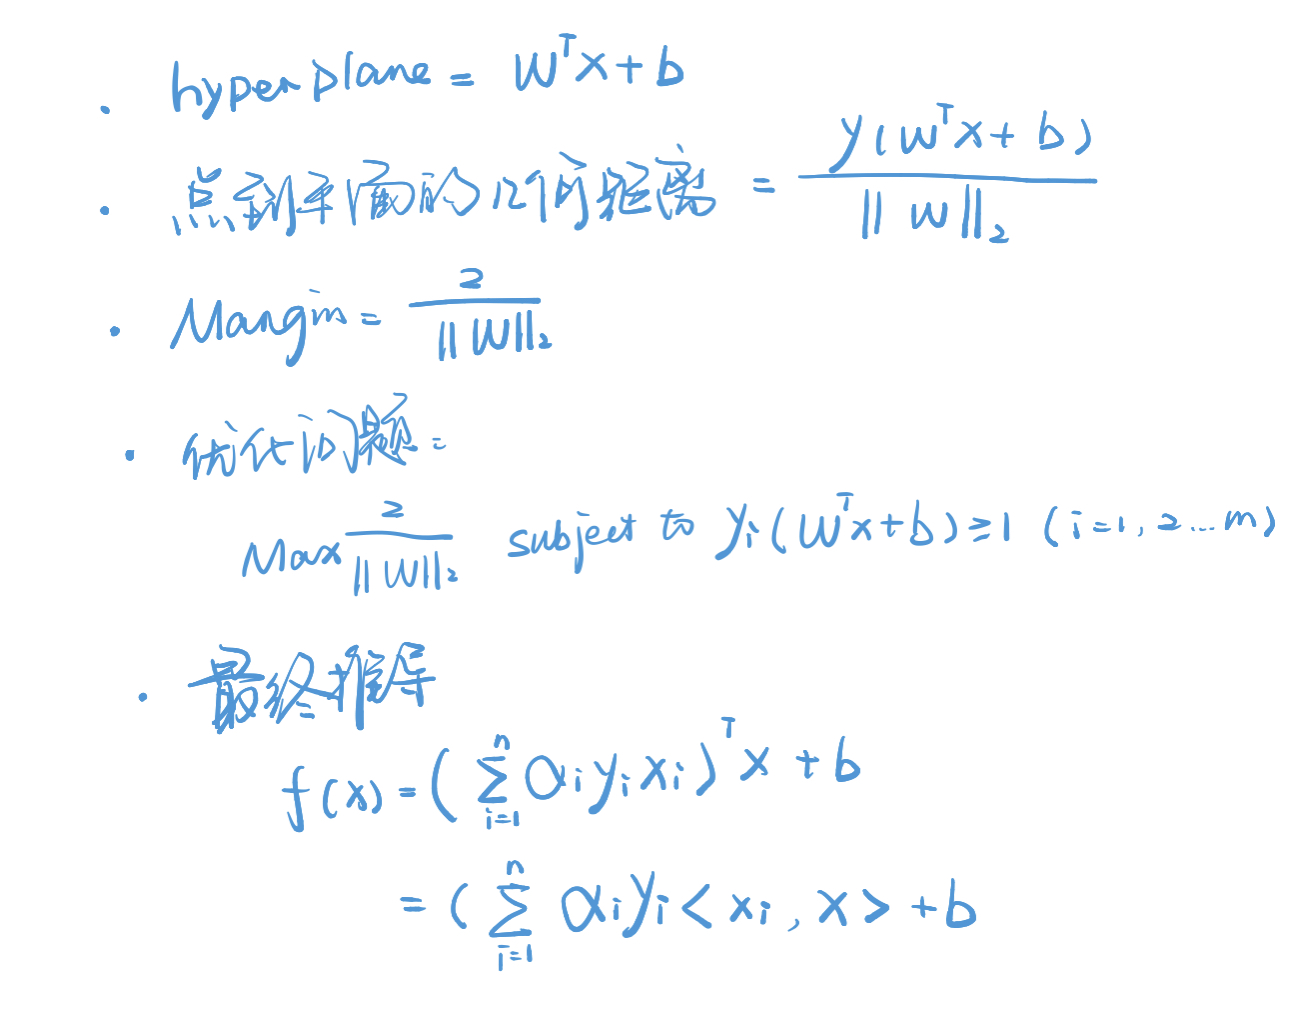 · hyperplane = W^T x + b
· 点到平面的几何距离 = y(w^T x + b) / ||w||₂
· Margin = 2 / ||W||₂
· 优化问题:
Max 2 / ||W||₂ subject to yᵢ(W^T x + b) ≥ 1 (i=1, 2...m)
· 最终推导
f(x) = (∑ⁿᵢ₌₁ αᵢ yᵢ xᵢ)^T x + b
= (∑ⁿᵢ₌₁ αᵢ yᵢ < xᵢ, x > + b